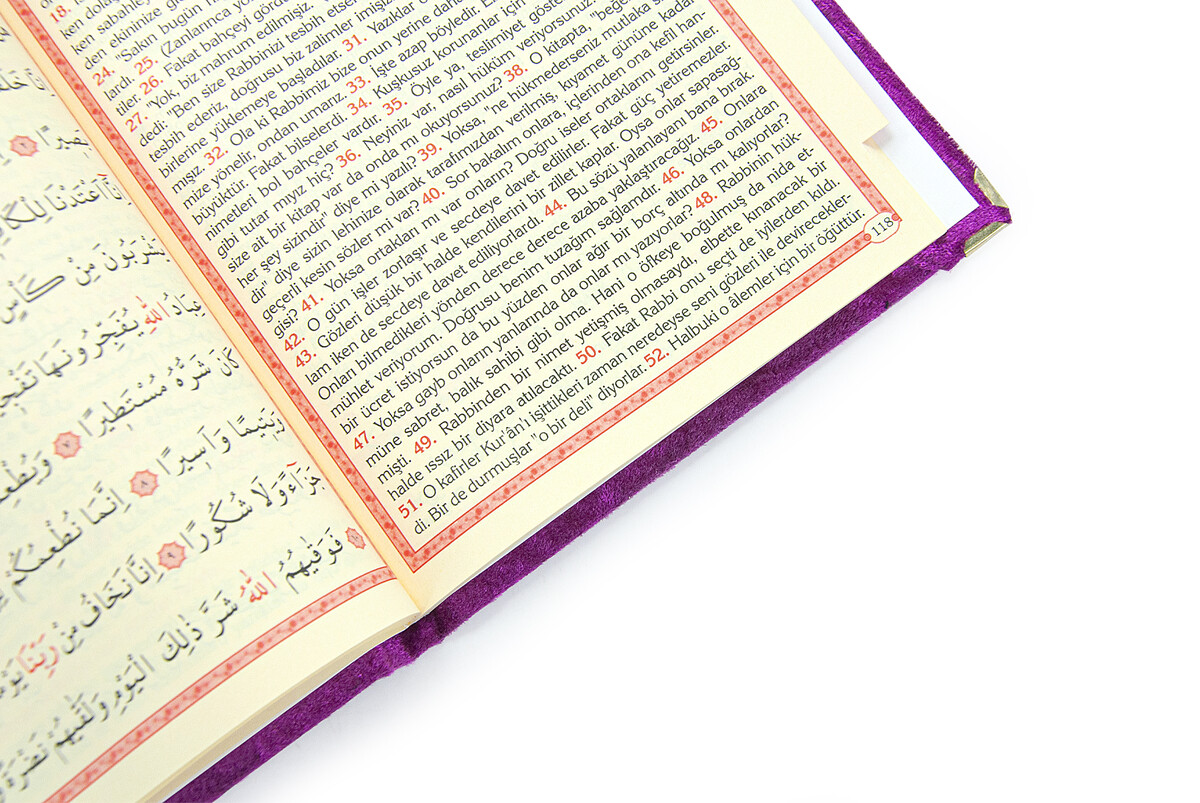 18.
ken sabahleyin
den ekininize
24. "Sakın bugün
ardı. 25. (Zanlarınca
tiler. 26. Fakat bahçeyi
27. "Yok, biz mahrum edilmişiz.
dedi: "Ben size Rabbinizi tesbih etse
tesbih ederiz, doğrusu biz zalimler imişiz
birlerine yüklemeye başladılar. 31. Yazıklar
mışız. 32. Ola ki Rabbimiz bize onun yerine daha
mize yönelir, ondan umarız. 33. İşte azap böyledir.
büyüktür. Fakat bilselerdi. 34. Kuşkusuz korunanlar için
nimetleri bol bahçeler vardır. 35. Öyle ya, teslimiyet
gibi tutar mıyız hiç? 36. Neyiniz var, nasıl hüküm veriyorsunuz?
size ait bir kitap var da onda mı okuyorsunuz? 38. O kitapta, "beğe
her şey sizindir" diye mi yazılı? 39. Yoksa, "ne hükmederseniz mutlaka
dir" diye sizin lehinize olarak tarafımızdan verilmiş, kıyamet gününe kadar
geçerli kesin sözler mi var? 40. Sor bakalım onlara, içlerinden ona kefil han-
gisi? 41. Yoksa ortakları mı var onların? Doğru iseler ortaklarını getirsinler.
42. O gün işler zorlaşır ve secdeye davet edilirler. Fakat güç yetiremezler.
43. Gözleri düşük bir halde kendilerini bir zillet kaplar. Oysa onlar sapasağ-
lam iken de secdeye davet ediliyorlardı. 44. Bu sözü yalanlayanı bana bırak.
Onları bilmedikleri yönden derece derece azaba yaklaştıracağız. 45. Onlara
mühlet veriyorum. Doğrusu benim tuzağım sağlamdır. 46. Yoksa onlardan
bir ücret istiyorsun da bu yüzden onlar ağır bir borç altında mı kalıyorlar?
47. Yoksa gayb onların yanlarında da onlar mı yazıyorlar? 48. Rabbinin hük-
müne sabret, balık sahibi gibi olma. Hani o öfkeye boğulmuş da nida et-
mişti. 49. Rabbinden bir nimet yetişmiş olmasaydı, elbette kınanacak bir
halde ıssız bir diyara atılacaktı. 50. Fakat Rabbi onu seçti de iyilerden kıldı.
51. O kafirler Kur'ân'ı işittikleri zaman neredeyse seni gözleri ile devirecekler-
di. Bir de durmuşlar "o bir deli" diyorlar. 52. Halbuki o âlemler için bir öğüttür.
118
اَعْتَدْنَا لِلْكَا
يَشْرَبُونَ مِنْ كَأْسٍ
عِبَادُ اللّٰهِ يُفَجِّرُونَهَا تَفْجِ
كَانَ شَرُّهُ مُسْتَطٖيرًا ٧ وَيُطْعِمُ
يَتٖيمًا وَاَسٖيرًا ٨ اِنَّمَا نُطْعِمُكُمْ
جَزَٓاءً وَلَا شُكُورًا ٩ اِنَّا نَخَافُ مِنْ رَبِّنَا يَوْ
١٠ فَوَقٰيهُمُ اللّٰهُ شَرَّ ذٰلِكَ الْيَوْمِ وَلَقّٰيهُمْ نَضْرَةً